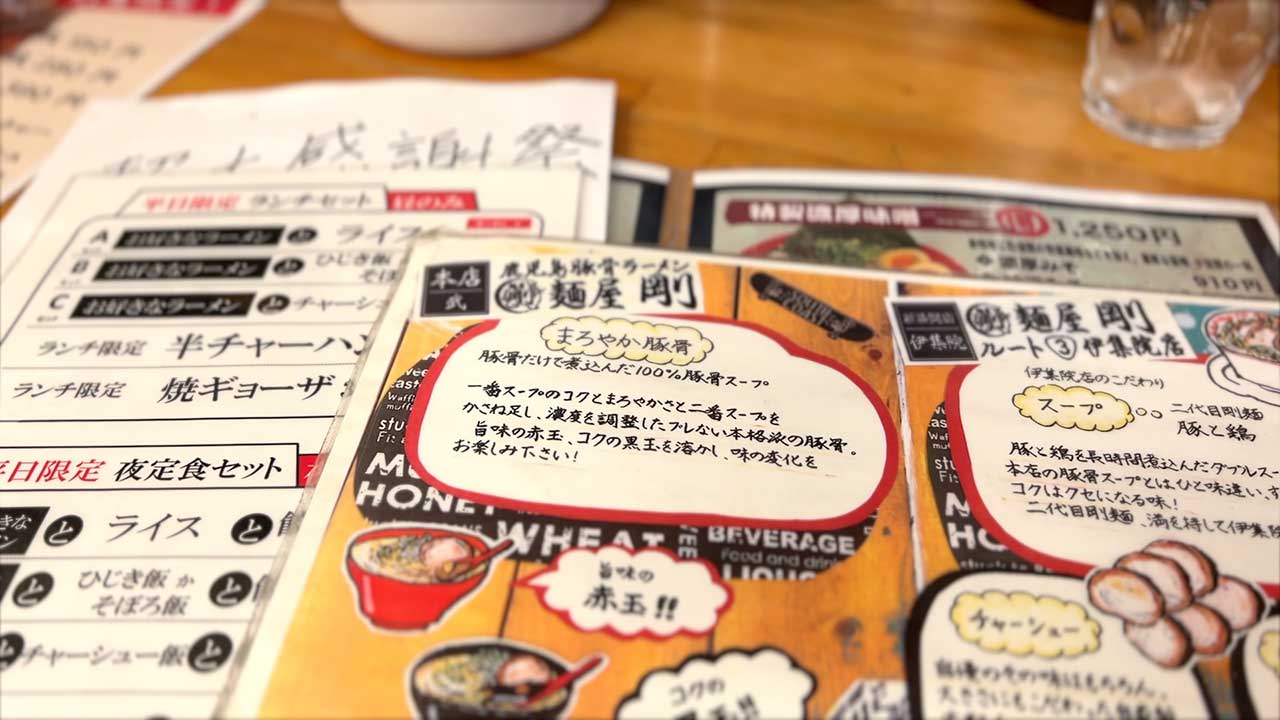 感謝祭
平日限定 ランチセット 昼のみ
A お好きなラーメン と ライス
B お好きなラーメン と ひじき飯
そぼ
C お好きなラーメン と チャーシュー
ランチ限定 半チャーハン
ランチ限定 焼ギョーザ
平日限定 夜定食セット
と ライス と
と ひじき飯 か そぼろ飯 と
と チャーシュー飯 と
特製濃厚味噌 1,250円
濃厚みそ
910円
本店 武
鹿児島豚骨ラーメン
麺屋 剛
まろやか豚骨
豚骨だけで煮込んだ100%豚骨スープ
一番スープのコクとまろやかさと二番スープを
かさね足し、濃度を調整したブレない本格派の豚骨。
旨味の赤玉、コクの黒玉を溶かし、味の変化を
お楽しみ下さい!
HONEY
WHEAT
BEVERAGE
Food and drin
旨味の
赤玉!!
コクの
伊集院
麺屋 剛
ルート③伊集院店
伊集院店のこだわり
スープ
二代目剛麺
豚と鶏
豚と鶏を長時間煮込んだダブルスー
本店の豚骨スープとはひと味違い、す
コクはクセになる味!
二代目剛麺、満を持して伊集院
チャーシュー
自慢のその味はもちろん、
大きさにもこだわ